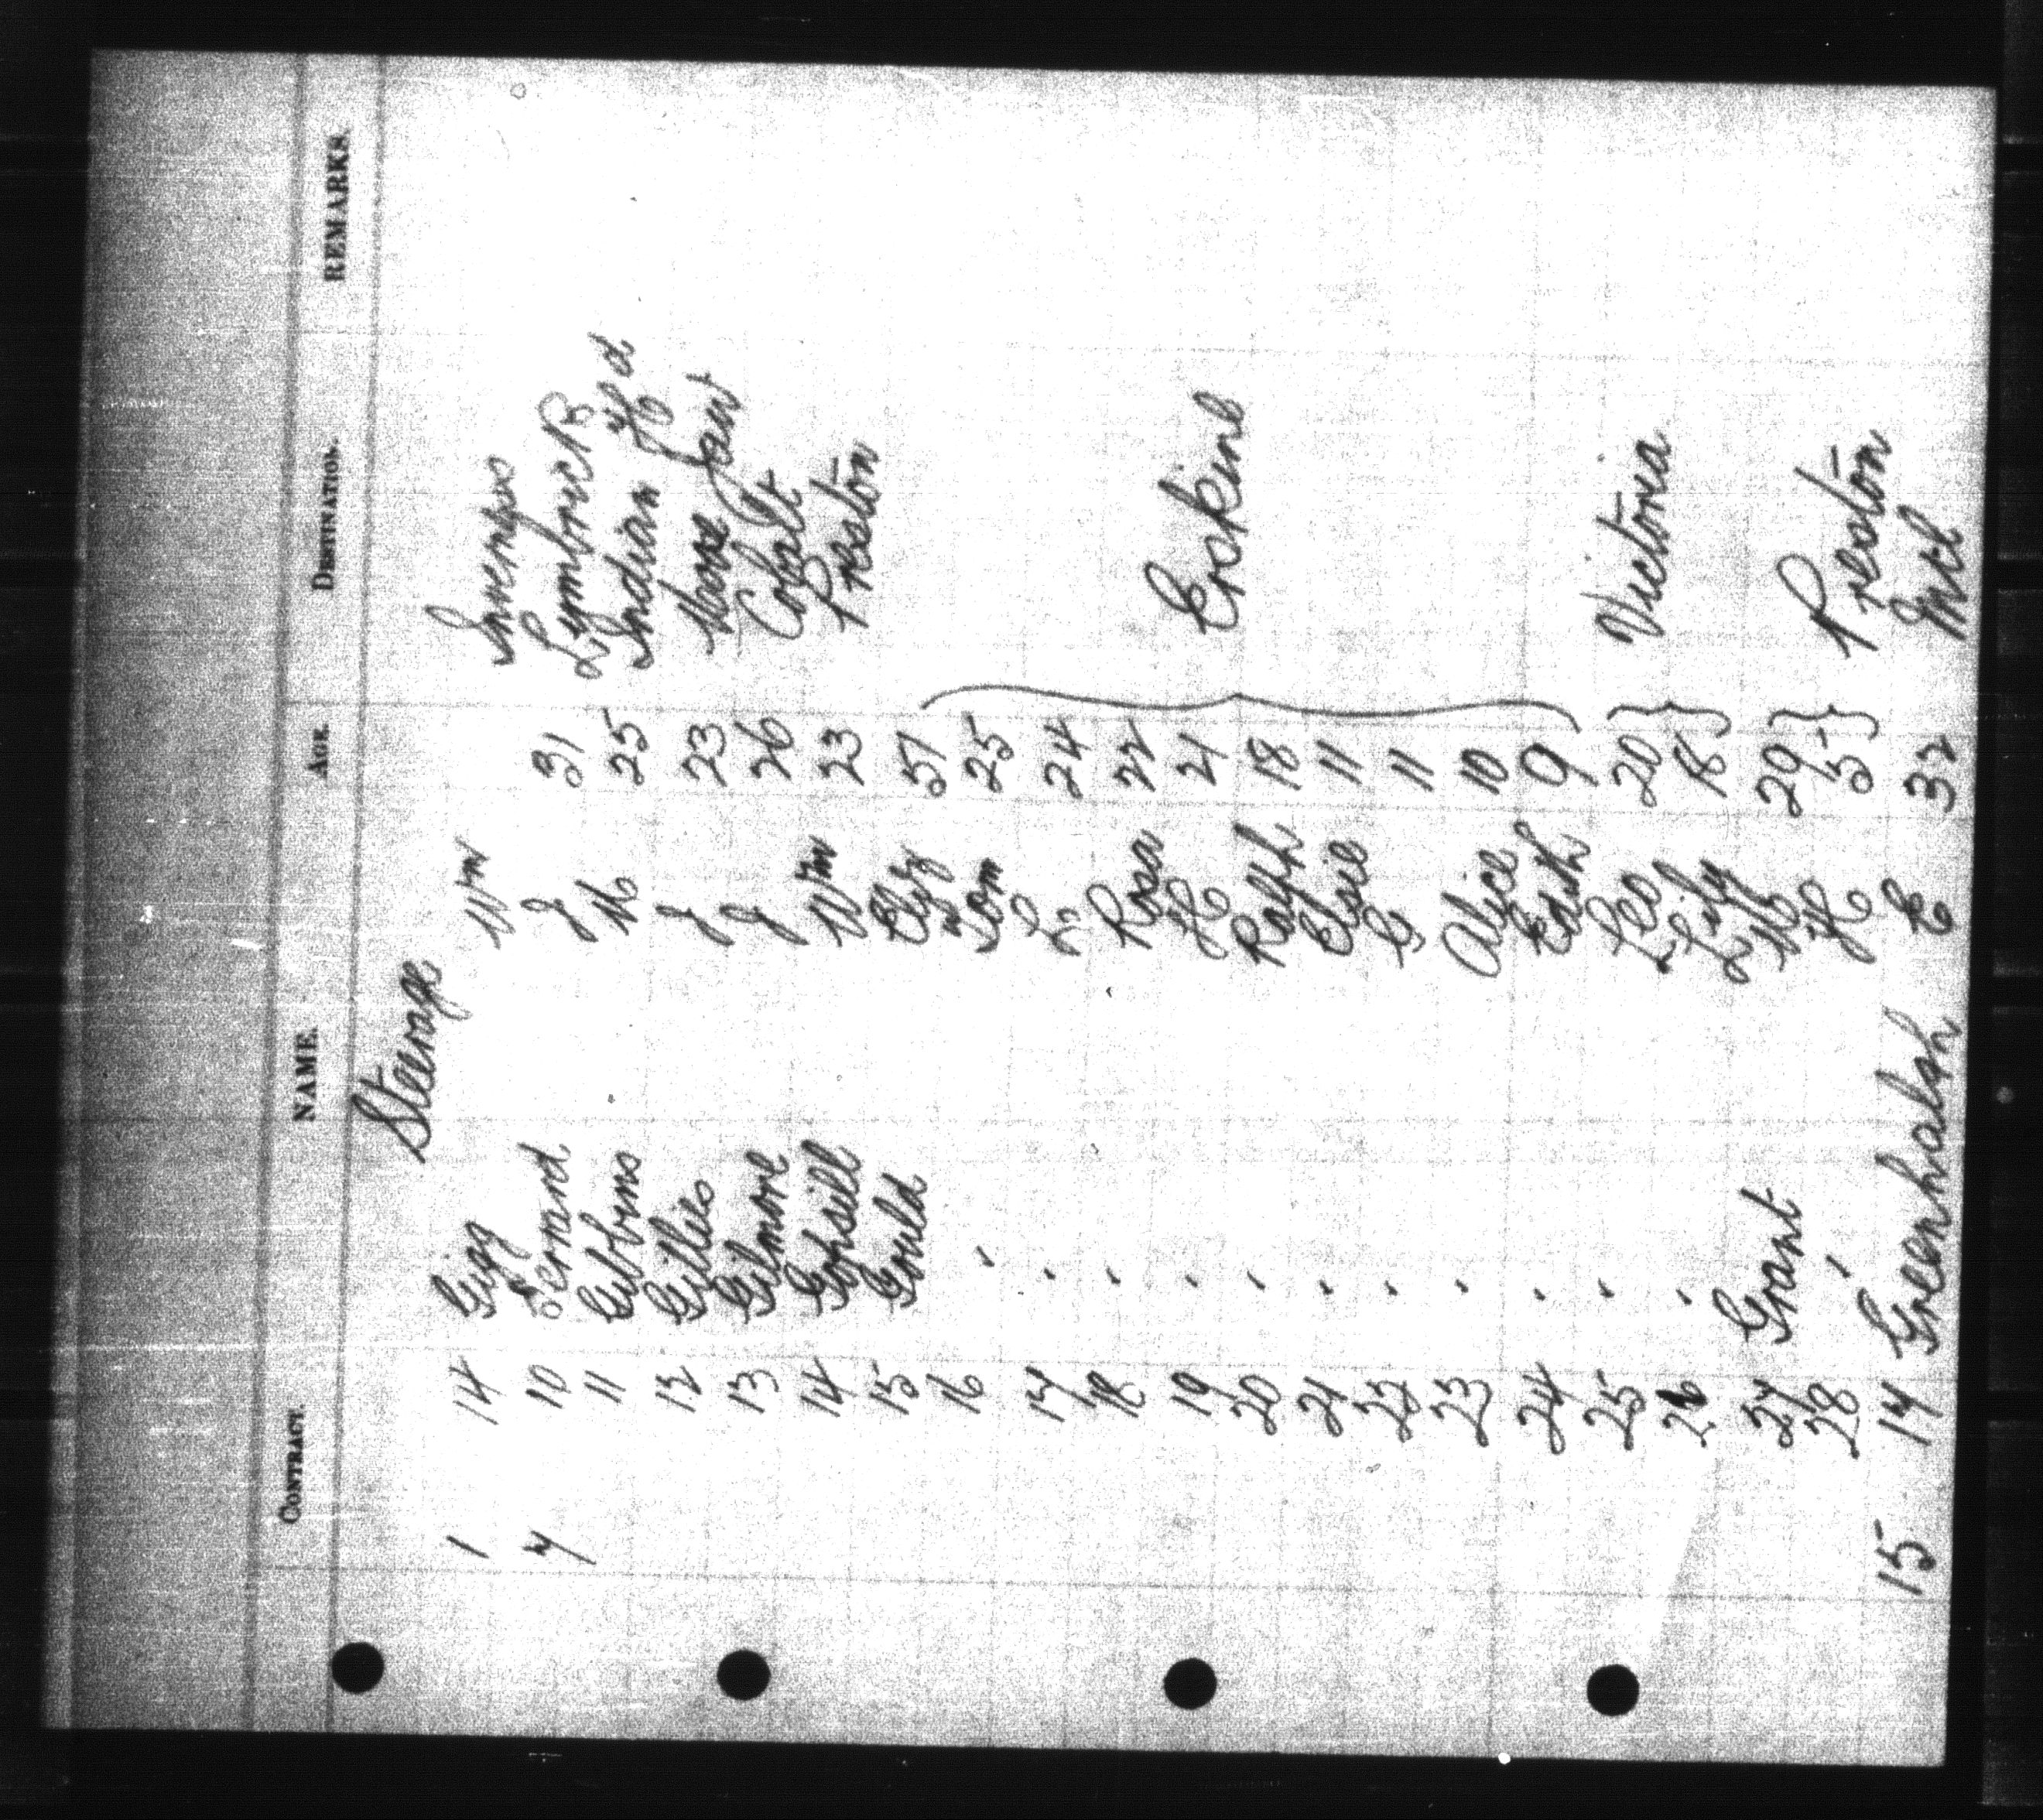 CONTRACT. NAME. AGE. DESTINATION. REMARKS.
Steerage
1 14 Gigg Wm
10 Gerrard J 31
11 Gibbins M 25 Indian Hd
12 Gillies J 23 Moose Jaw
13 Gilmore J 26 Cobalt
14 Gopsill Wm 23 Preston
15 Gould Eliz 57
16 " Tom 25
17 " 24
18 " Rosa 22
19 " H 21 Erskine
20 " Ralph 18
21 " Elsie 11
22 " G 11
23 " Alice 10
24 " Edith 9
25 " Leo 20 Victoria
26 " Lily 18
27 Grant M 29
28 " H 5 Preston
15 17 Greenhalsh E 32 Mtl